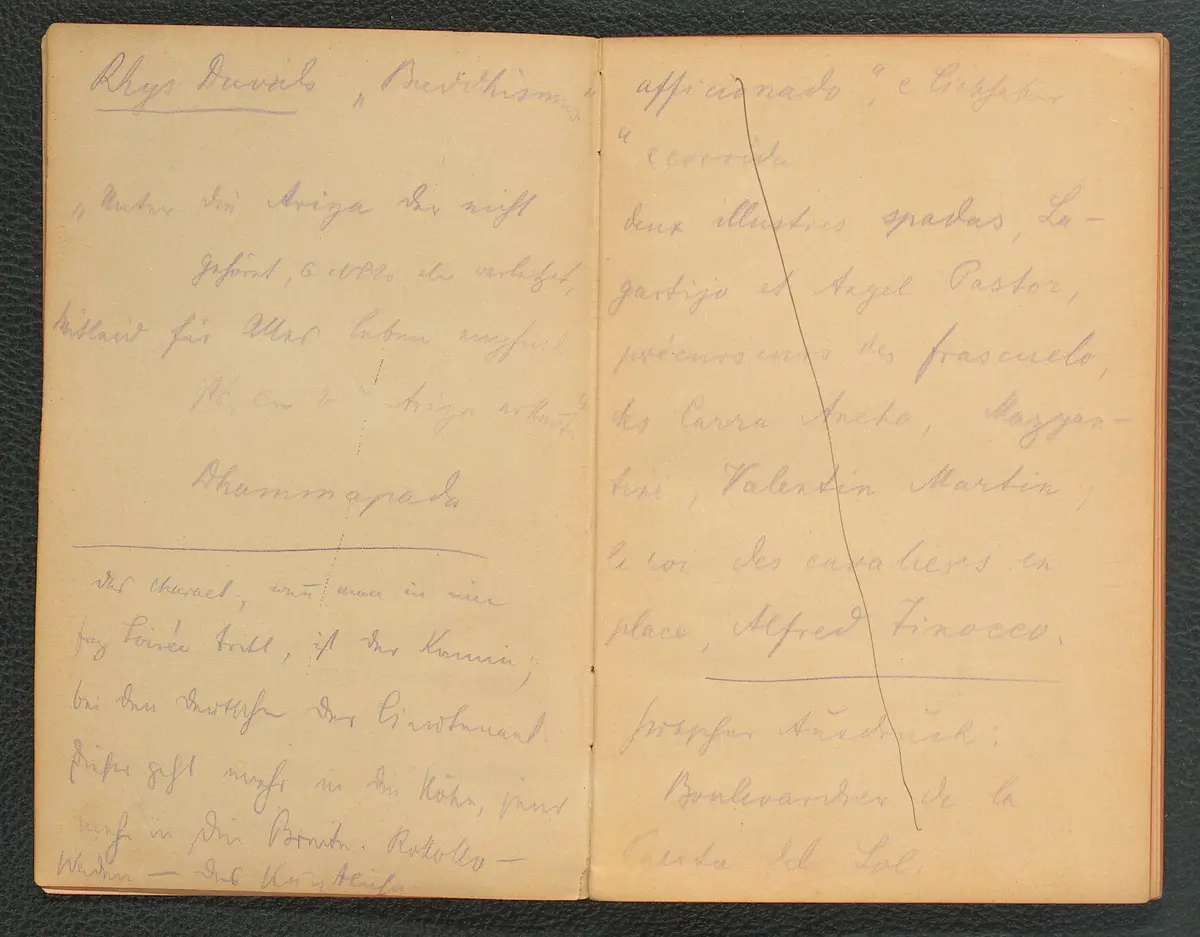 Rhys Davids „Buddhismus“
„Unter die Ariya der nicht
gehöret, der verletzet,
Mitleid für Alles Leben
Ariya
Dhammapada
das charact., wenn man in eine
frz Soirée tritt, ist der Kamin;
bei den Deutschen der Lieutenant.
Dieser geht mehr in die Höhe, jener
mehr in die Breite. Rokoko –
Waden – das
afficionado“, e Liebhaber
e corrida
deux illustres spadas, La-
gartijo et Angel Pastor,
précurseurs des frascuelo,
des Carra Ancha, Mazzan-
tini, Valentin Martin,
le roi des cavaliers en
place, Alfred Tinocco.
Ausdruck:
Boulevardier de la
Puerta del Sol.